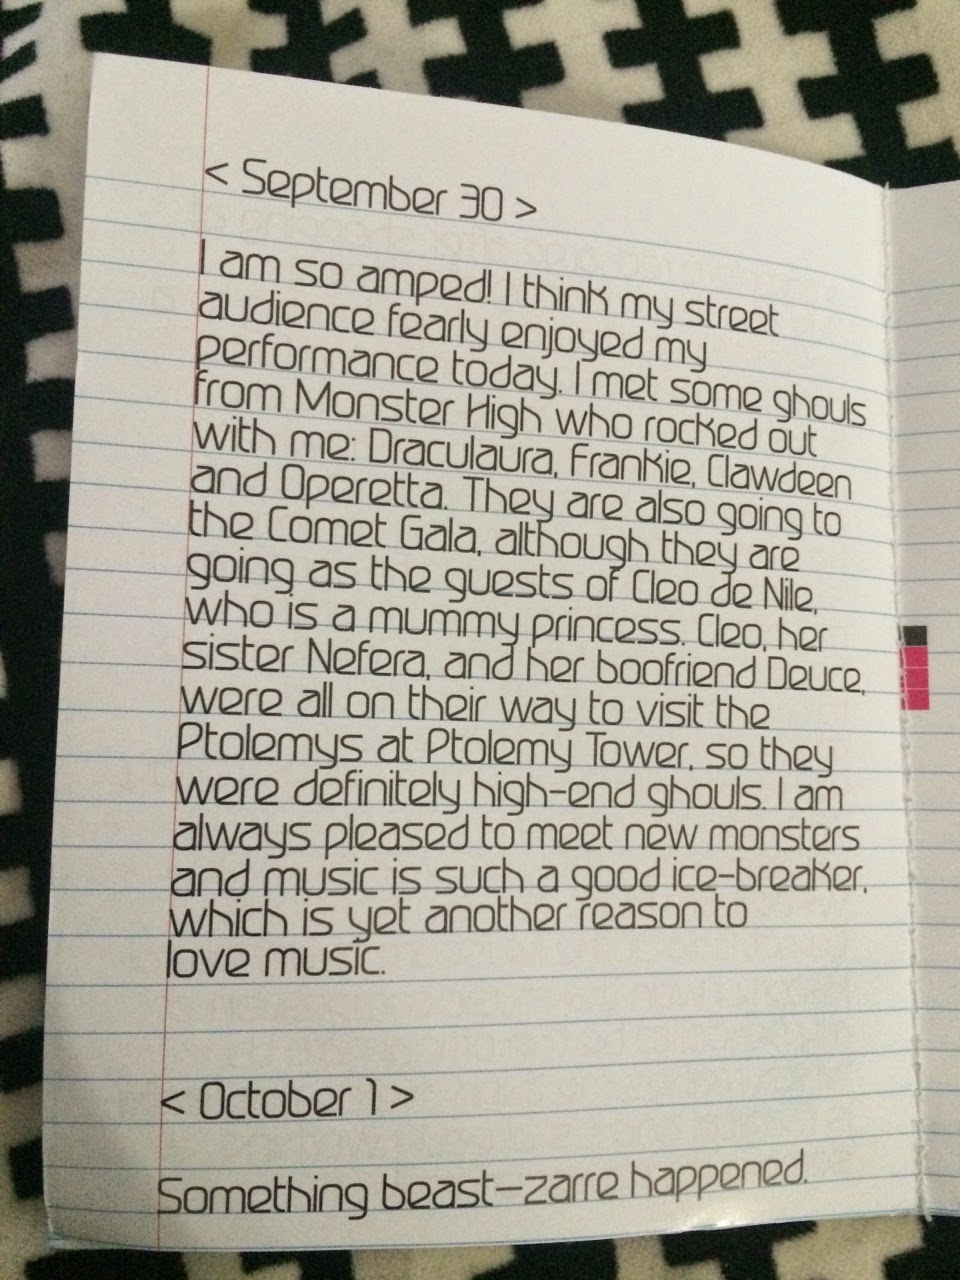 < September 30 >
I am so amped! I think my street
audience fearly enjoyed my
performance today. I met some ghouls
from Monster High who rocked out
with me: Draculaura, Frankie, Clawdeen
and Operetta. They are also going to
the Comet Gala, although they are
going as the guests of Cleo de Nile,
who is a mummy princess. Cleo, her
sister Nefera, and her boofriend Deuce,
were all on their way to visit the
Ptolemys at Ptolemy Tower, so they
were definitely high-end ghouls. I am
always pleased to meet new monsters
and music is such a good ice-breaker,
which is yet another reason to
love music.
< October 1 >
Something beast-zarre happened.